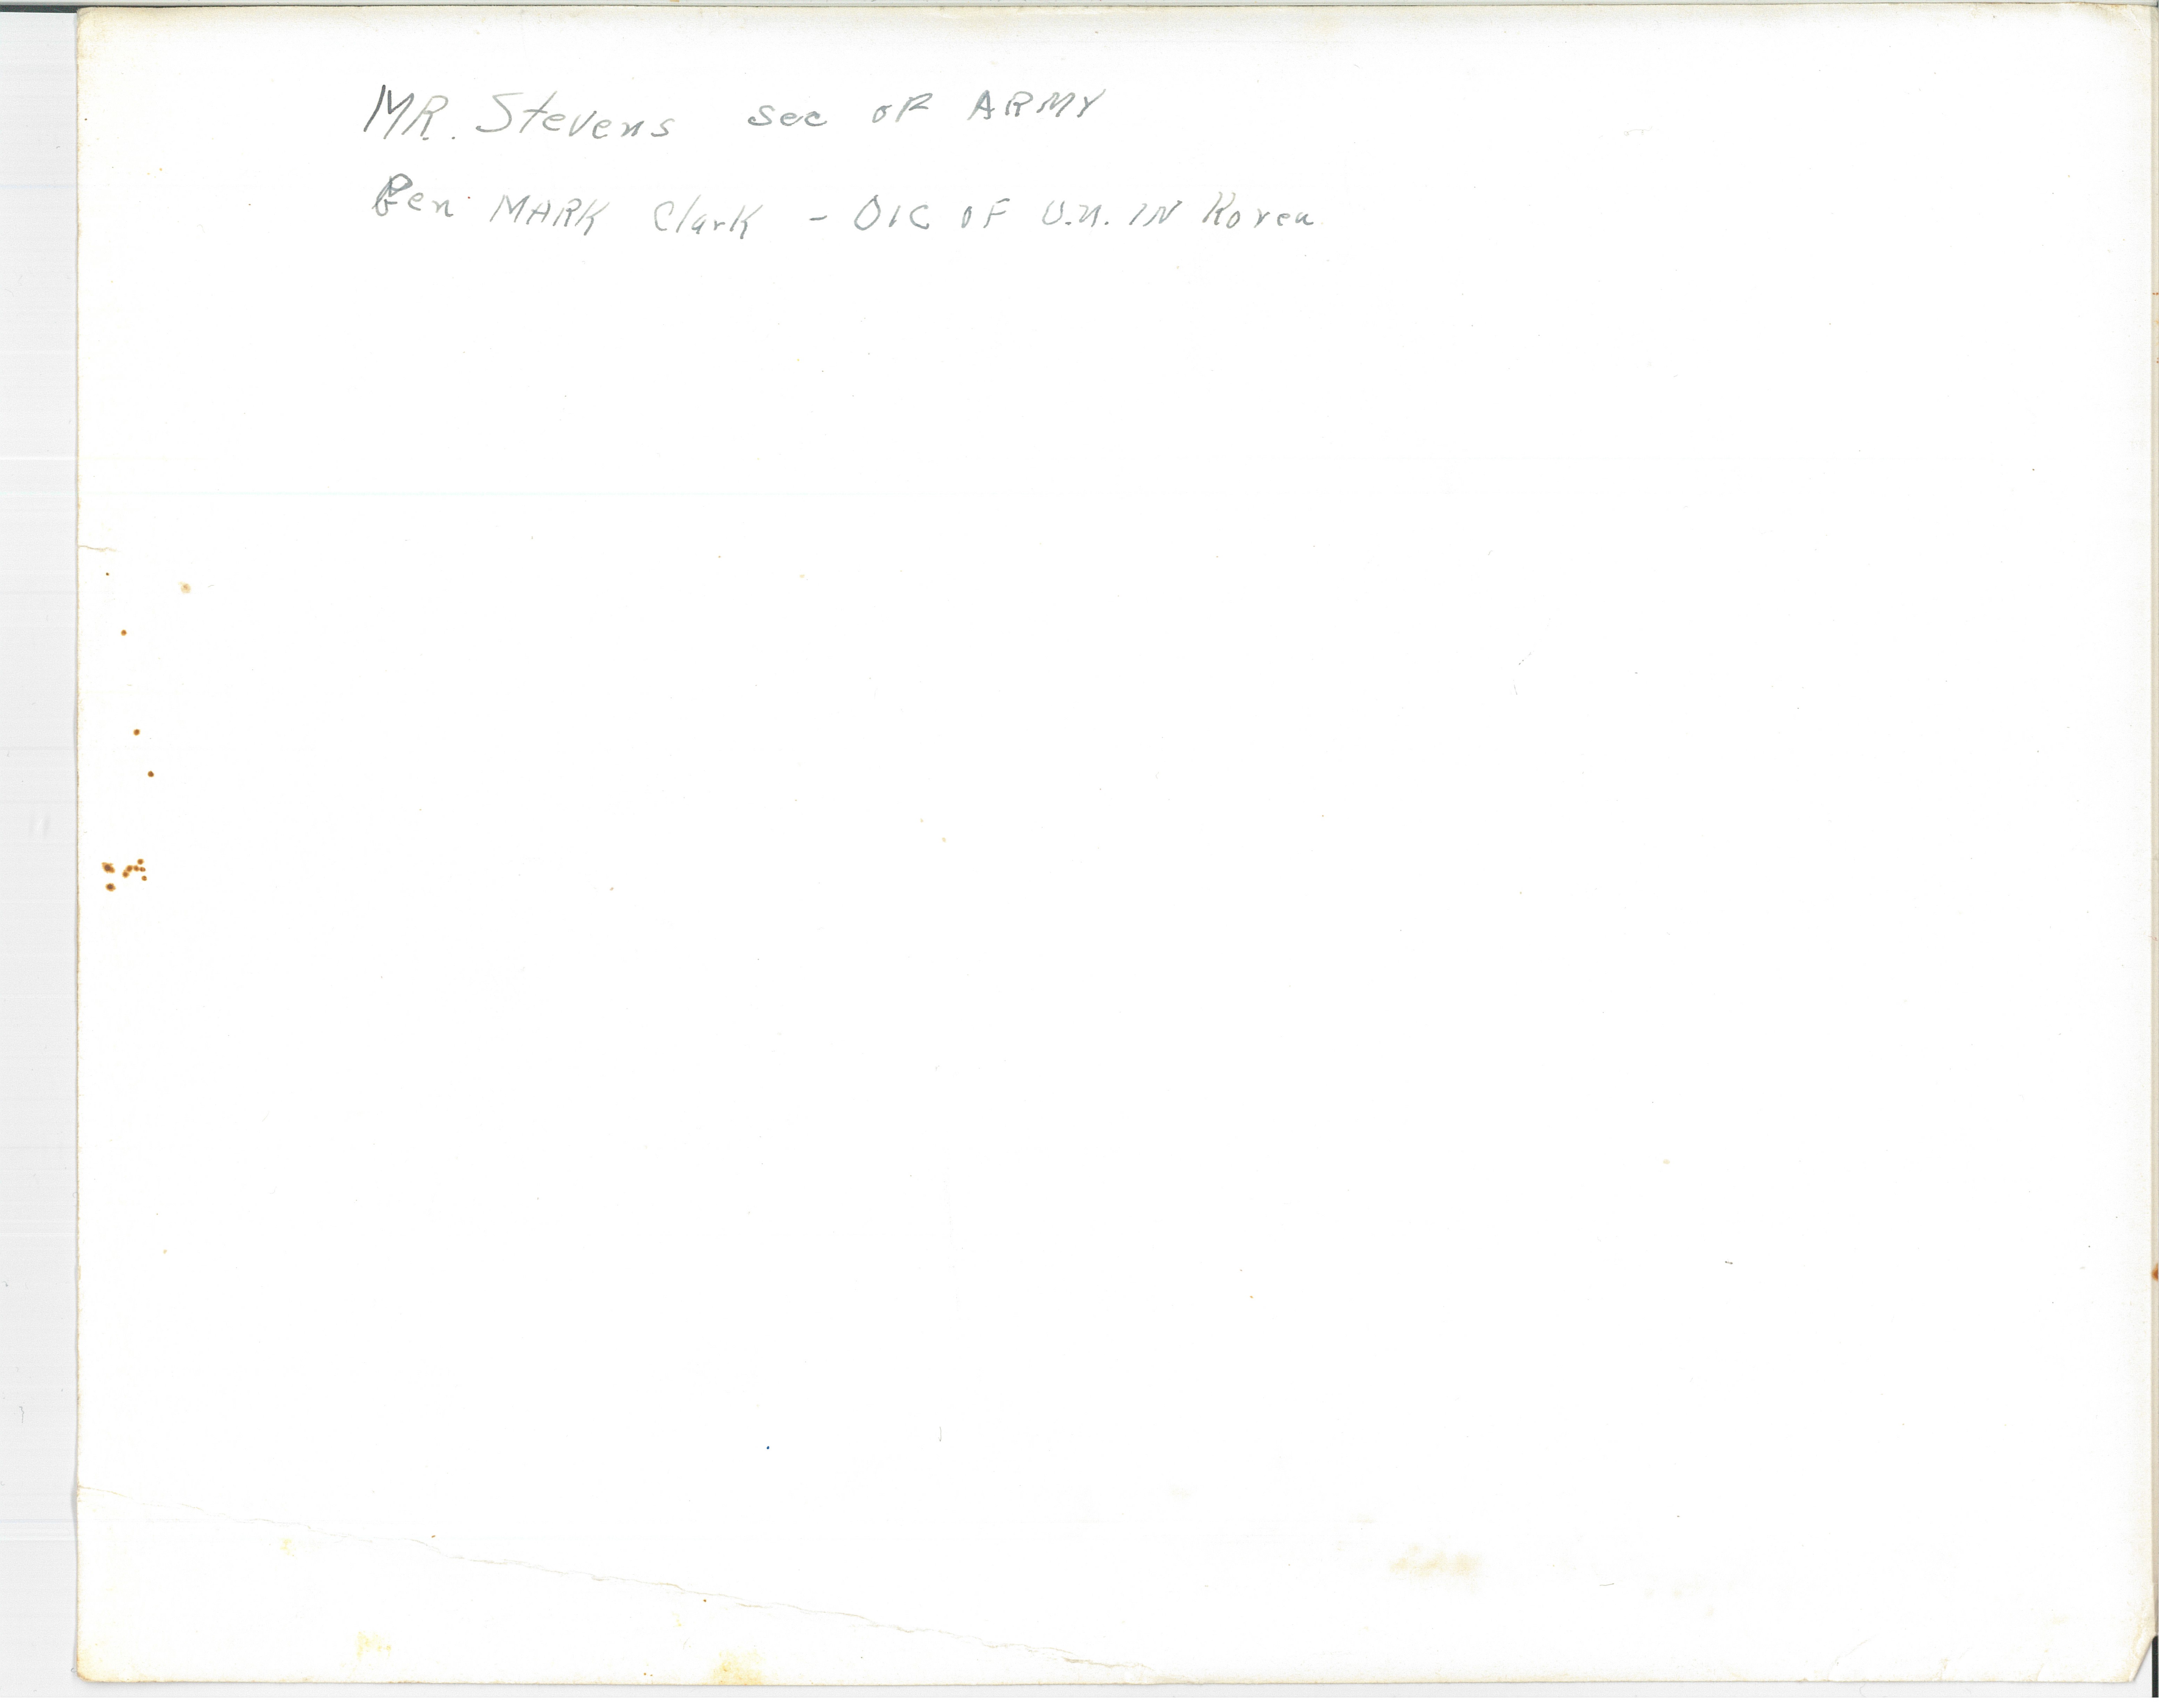 MR. Stevens sec of ARMY
Gen. MARK Clark - OIC OF U.N. IN Korea